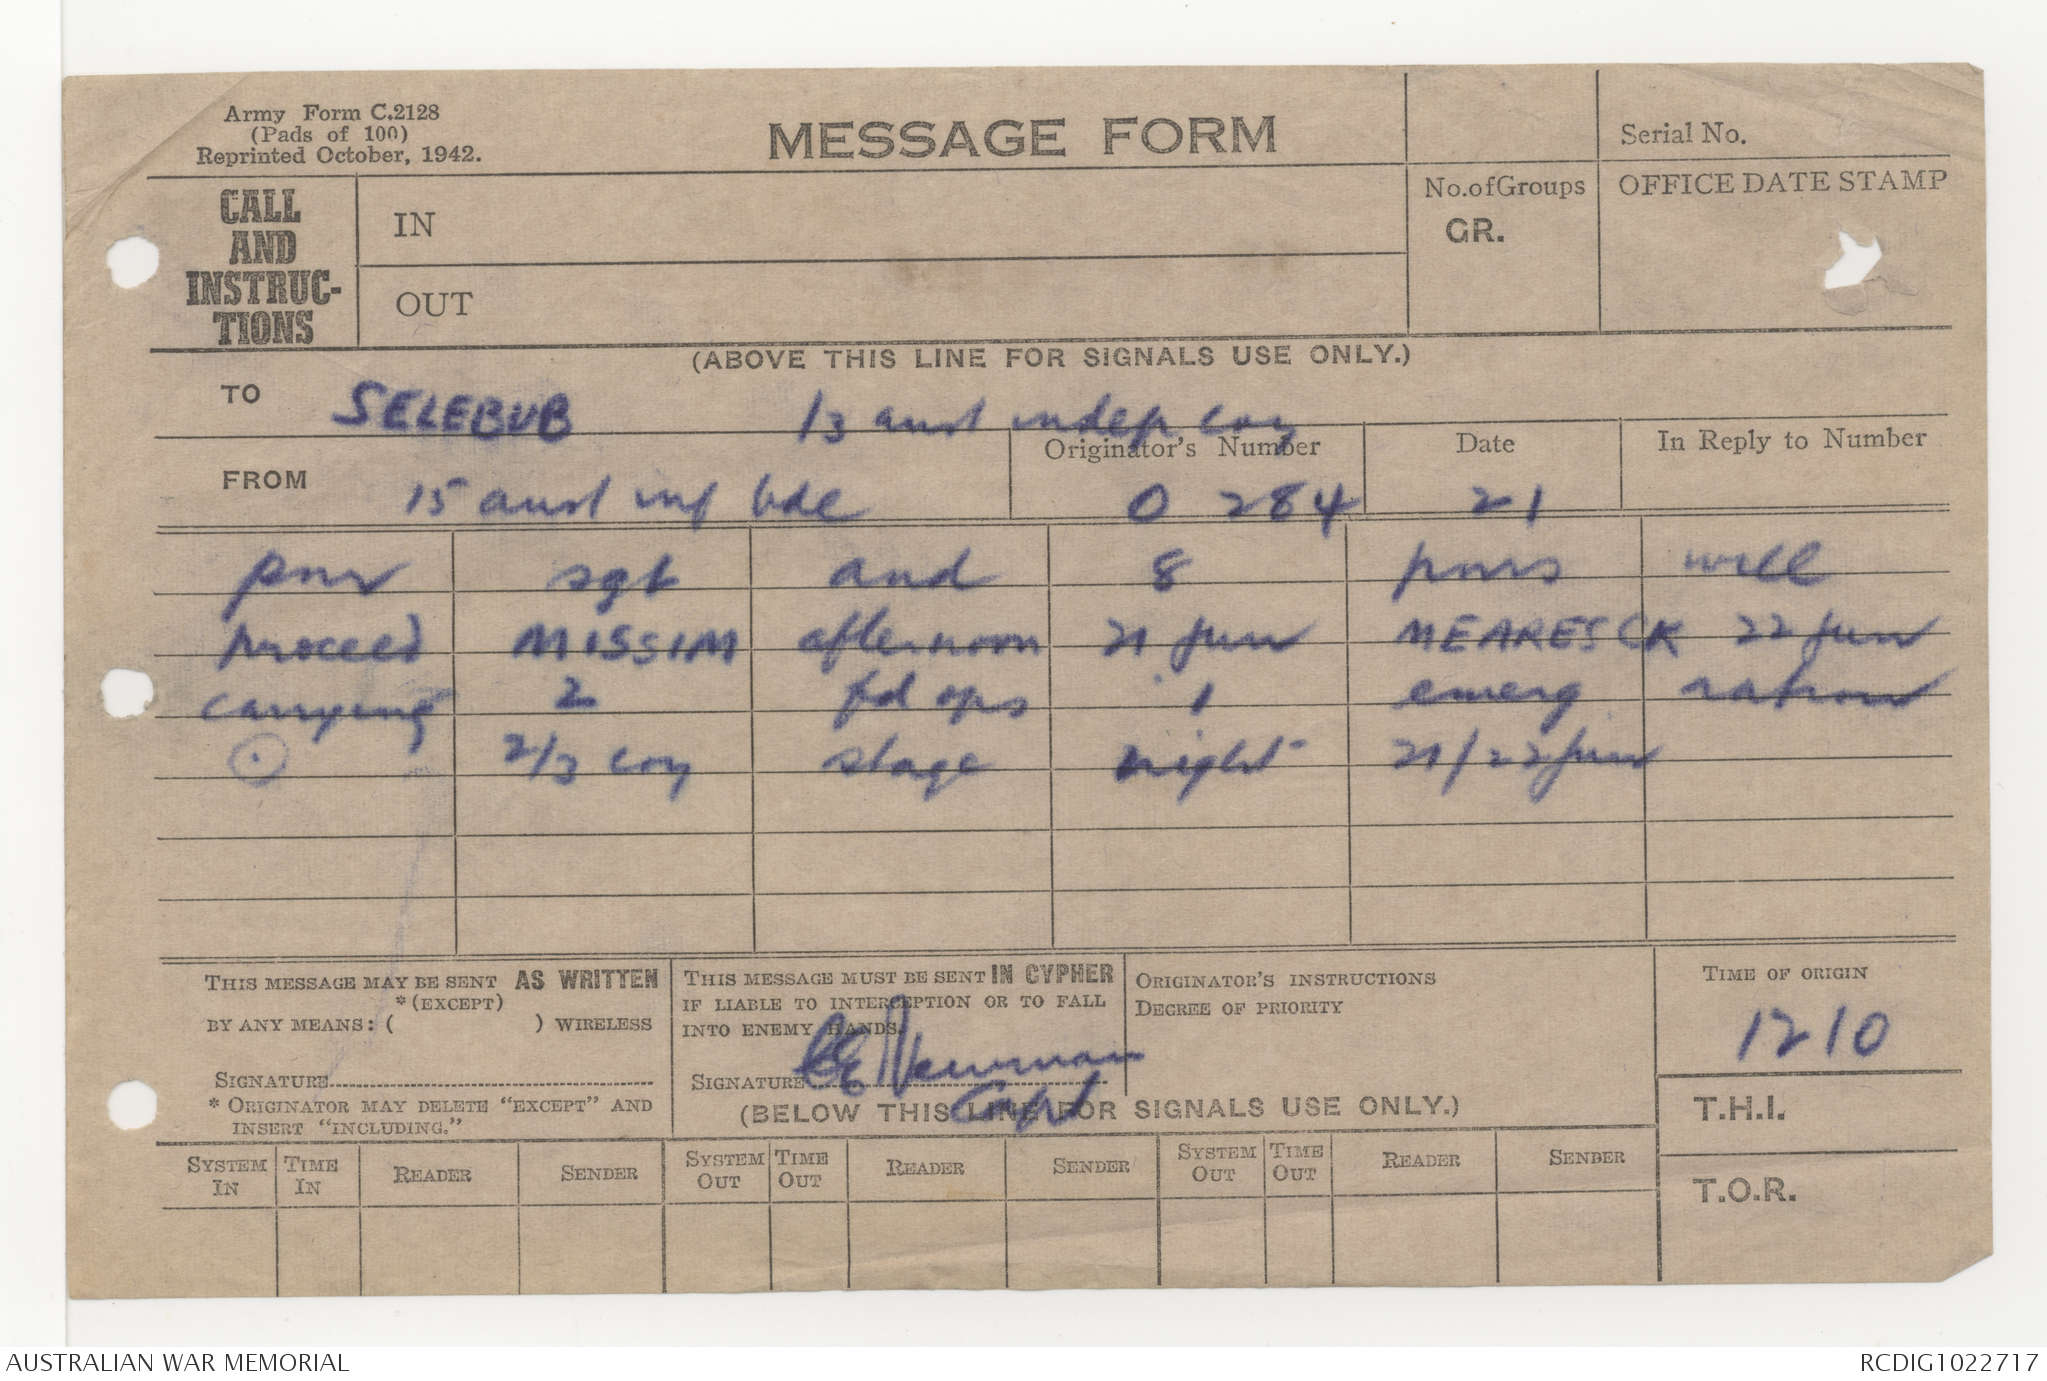 Army Form C.2128
(Pads of 100)
Reprinted October, 1942.
MESSAGE FORM
Serial No.
CALL
AND
INSTRUC-
TIONS
IN
OUT
No.ofGroups
GR.
OFFICE DATE STAMP
(ABOVE THIS LINE FOR SIGNALS USE ONLY.)
TO SELEBUB 1/3 aust indep coy
FROM 15 aust inf bde
Originator's Number 0 284
Date 21
In Reply to Number
pnr sgt and 8 pnrs will
proceed MISSIM afternoon 21 jun MEARES CK 22 jun
carrying 2 fd ops 1 emerg ration
⊙ 2/3 coy stage night 21/22 jun
THIS MESSAGE MAY BE SENT AS WRITTEN
*(EXCEPT)
BY ANY MEANS: ( ) WIRELESS
SIGNATURE
* ORIGINATOR MAY DELETE "EXCEPT" AND
INSERT "INCLUDING."
THIS MESSAGE MUST BE SENT IN CYPHER
IF LIABLE TO INTERCEPTION OR TO FALL
INTO ENEMY HANDS.
SIGNATURE Newman
Capt
ORIGINATOR'S INSTRUCTIONS
DEGREE OF PRIORITY
TIME OF ORIGIN
1210
T.H.I.
T.O.R.
(BELOW THIS LINE FOR SIGNALS USE ONLY.)
SYSTEM IN TIME IN READER SENDER SYSTEM OUT TIME OUT READER SENDER SYSTEM OUT TIME OUT READER SENDER
AUSTRALIAN WAR MEMORIAL
RCDIG1022717